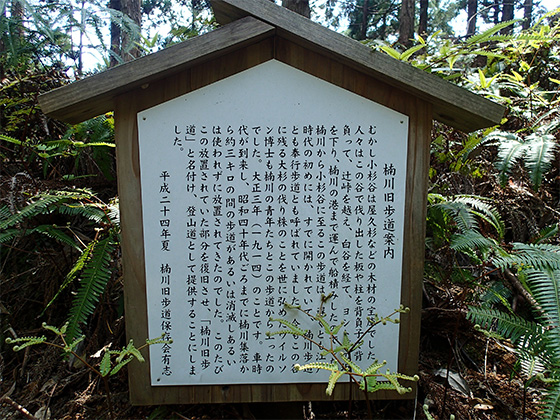 楠川旧歩道案内
むかし小杉谷は屋久杉などの木材の宝庫でした。
人々はこの谷で伐り出した板や柱を背負子で背
負って、辻峠を越え、白谷を経て、ヨ
を下り、楠川の港まで運んで船積みした
楠川から小杉谷に至るこの歩道は、もと江戸
時代の 開かれて、楠川歩道
とも奉行歩道とも呼ばれていました。 この谷
に残る大杉の伐り株のことを世に弘めたウィルソ
ン博士も楠川の青年たちとこの歩道から上ったの
でした。大正三年（一九一四）のことです。車時
代が到来し、昭和四十年代ごろまでに楠川集落か
ら約三キロの間の歩道があるいは消滅しあるい
は使われずに放置されてきたのでした。このたび
この放置されていた部分を復旧させ、「楠川旧歩
道」と名付け、登山道として提供することにしま
した。
平成二十四年夏 楠川旧歩道保 会有志